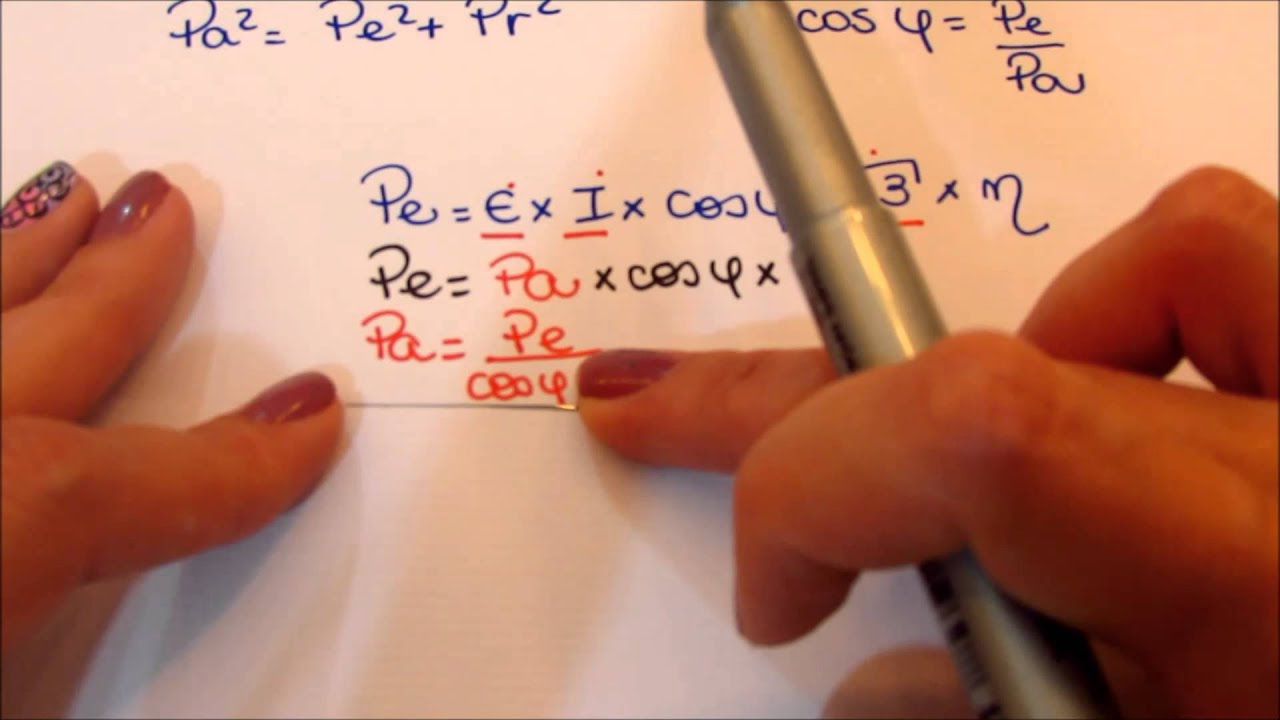 Pa² = Pe² + Pr²
cos φ = Pe/Pa
Pe = E × I × cos √3 × η
Pe = Pa × cos φ ×
Pa = Pe/cos φ